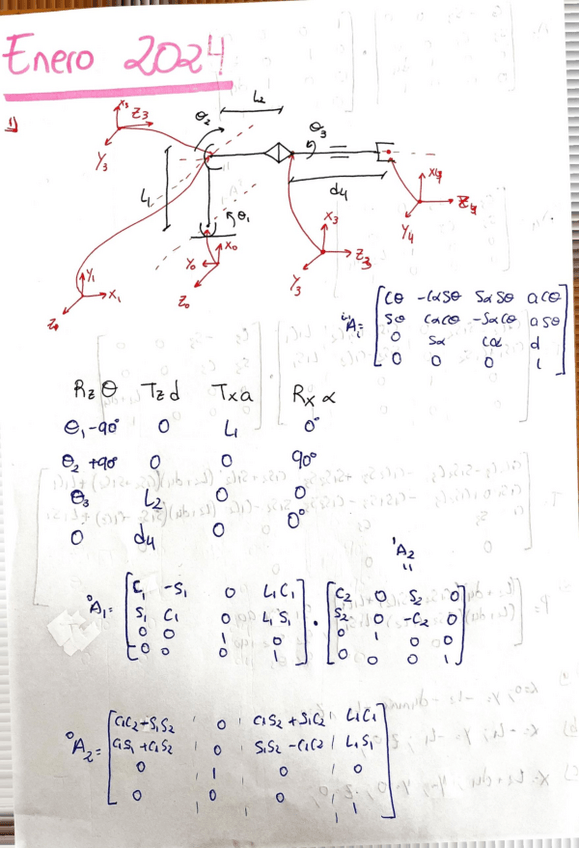 Enero 2024
1)
X3 Z3 Y3
θ2 L2
θ3
L1
θ1
d4
X4 Y4
X0 Y0 Z0
Y1 X1
X3 Z3 Y3
i-1Ai = [Cθ -CαSθ SαSθ aCθ
Sθ CαCθ -SαCθ aSθ
0 Sα Cα d
0 0 0 1]
Rzθ Tzd Txa Rxα
θ1-90° 0 L1 0°
θ2+90° 0 0 90°
θ3 L2 0 0
0 d4 0 0°
1A2
=
0A1 = [C1 -S1 0 L1C1 ] · [C2 0 S2 0
S1 C1 0 L1S1 S2 0 -C2 0
0 0 1 0 0 1 0 0
0 0 0 1] 0 0 0 1]
0A2 = [C1C2-S1S2 0 C1S2+S1C2 L1C1
C2S1+C1S2 0 S1S2-C1C2 L1S1
0 1 0 0
0 0 0 1]